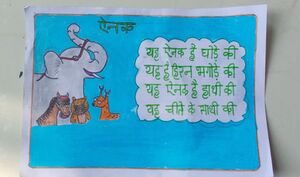 ऐनक
यह ऐनक है घोड़े की
यह है हिरन भगोड़े की
यह ऐनक है हाथी की
यह चीते के साथी की